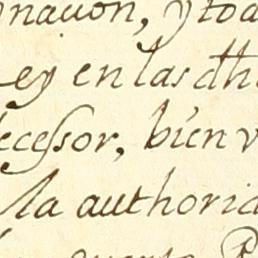 nacion, y toda
Ley en las dh
ecessor, bien v
la authorid